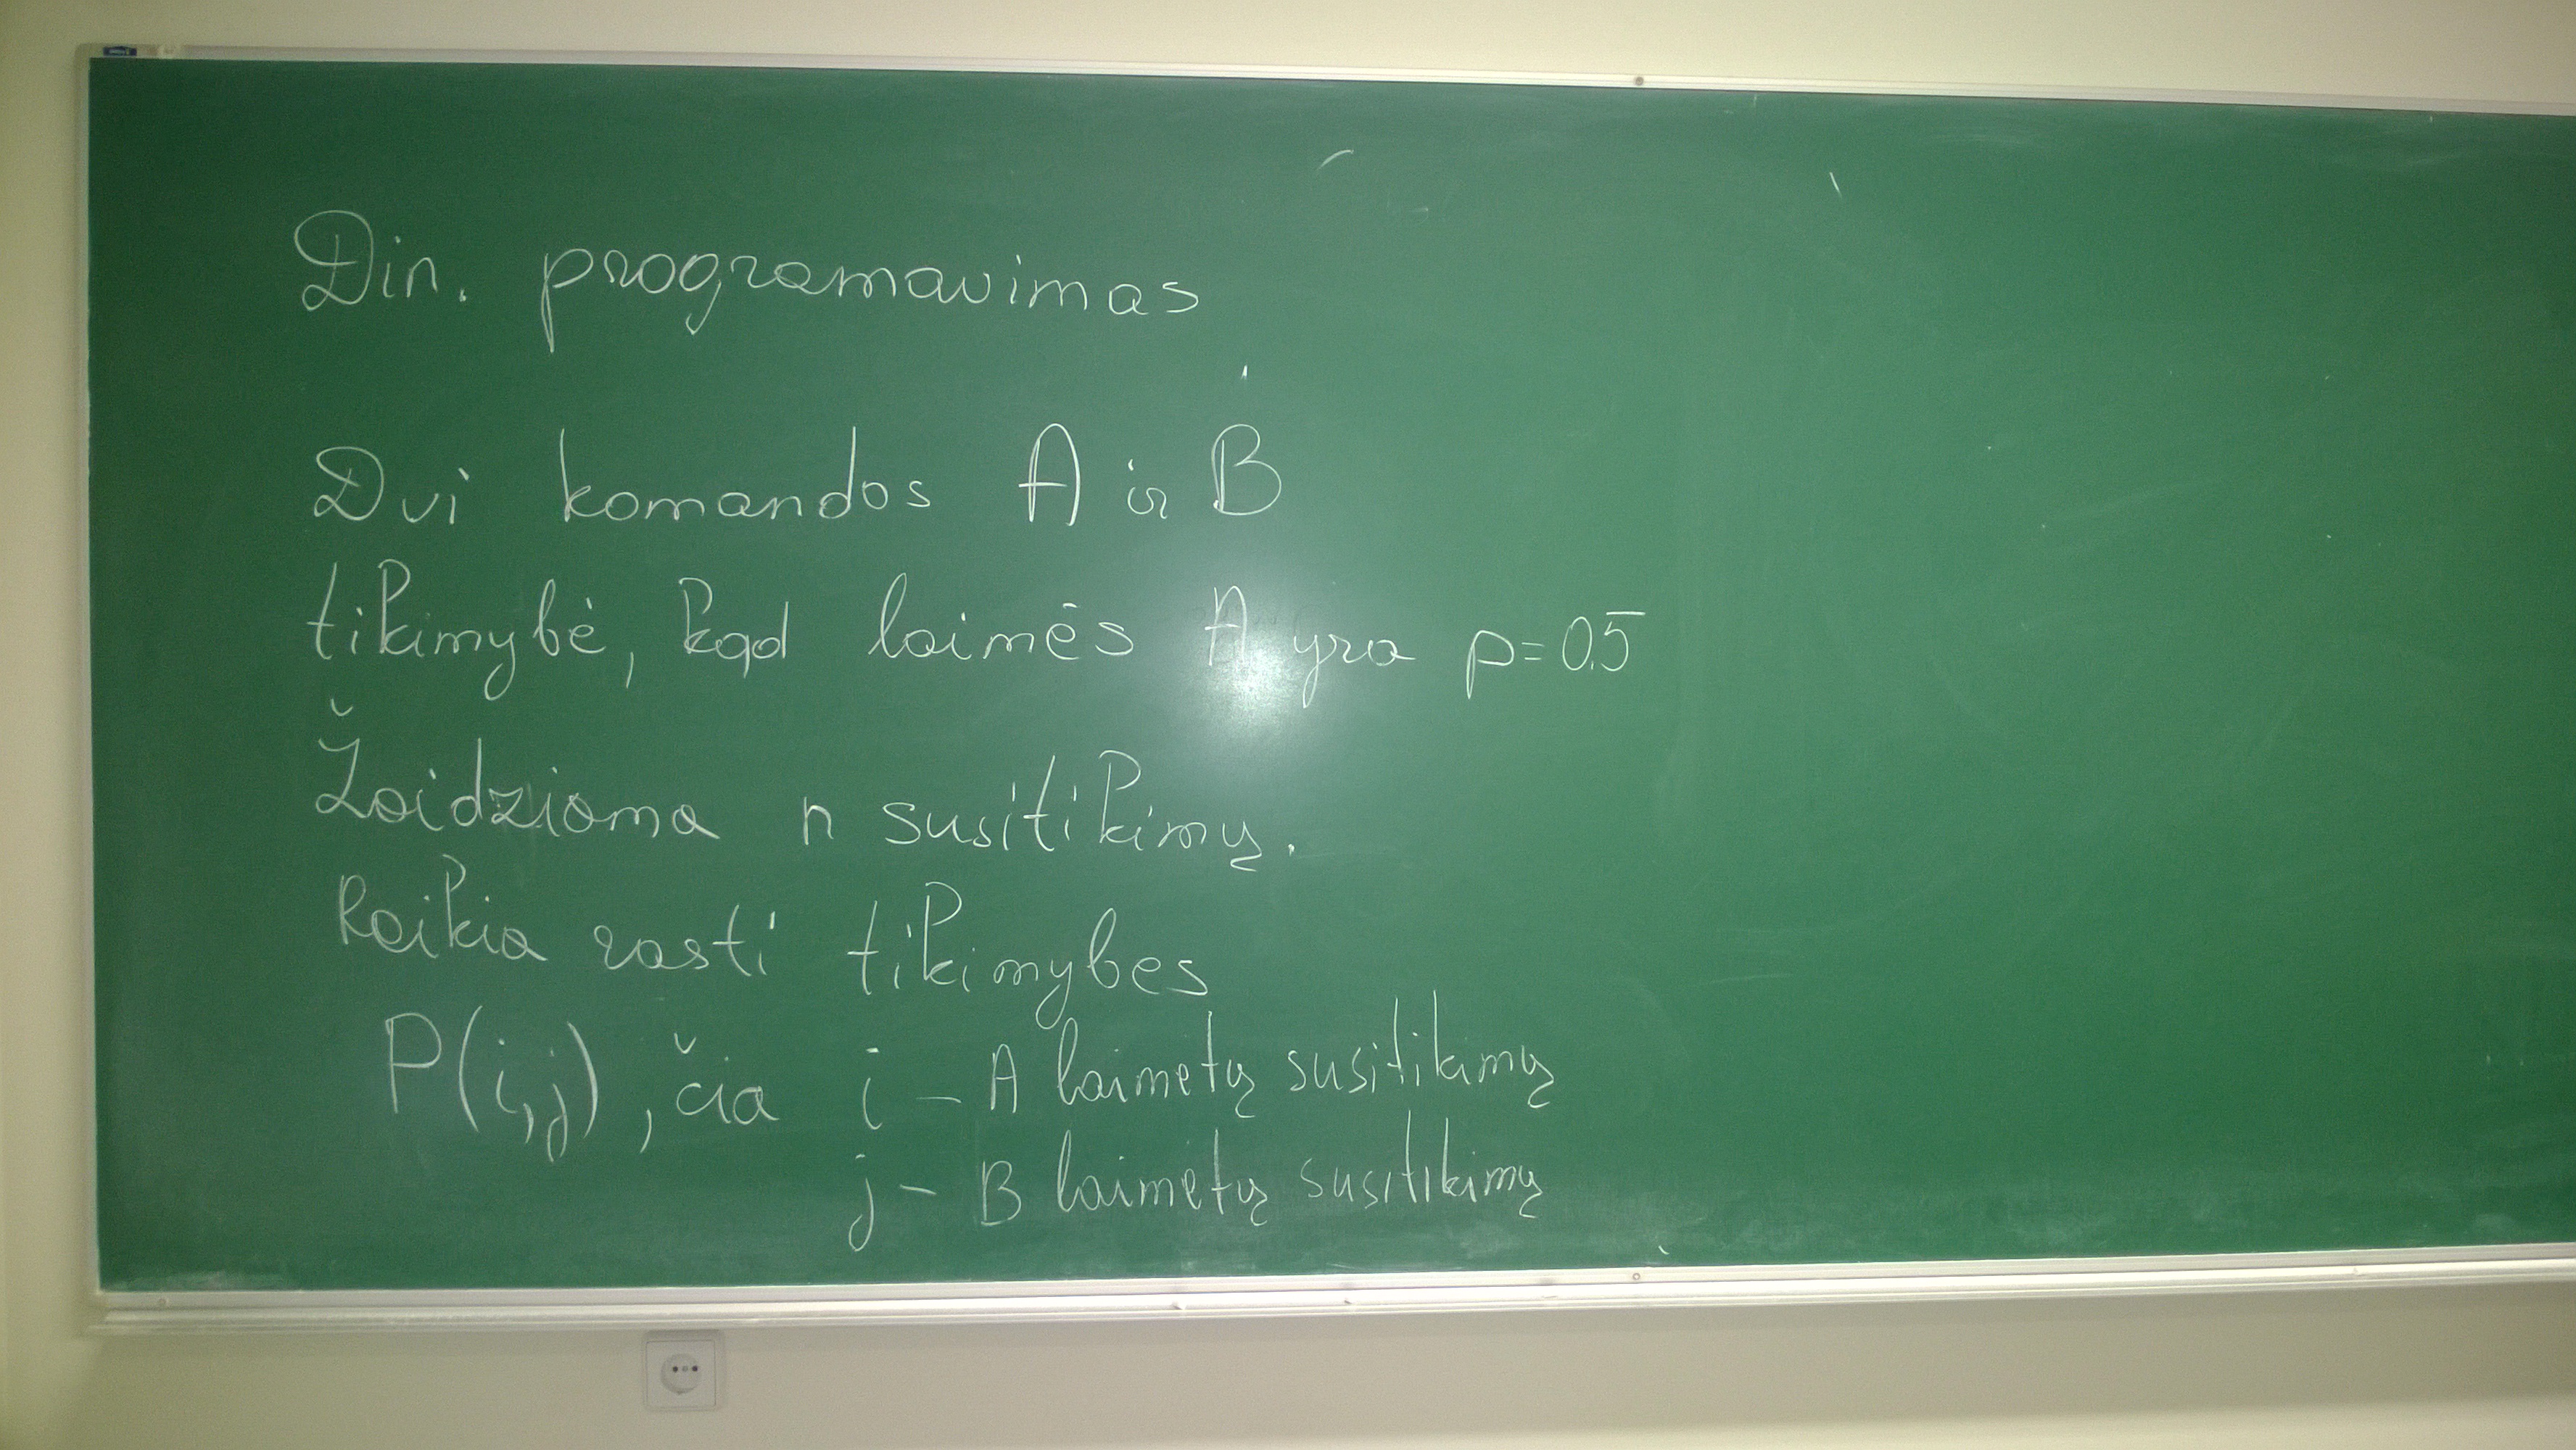 Din. programavimas
Dvi komandos A ir B
tikimybė, kad laimės A yra p=0.5
Žaidziama n susitikimų.
Reikia rasti tikimybes
P(i,j), čia i – A laimetų susitikimų
j – B laimetų susitikimų